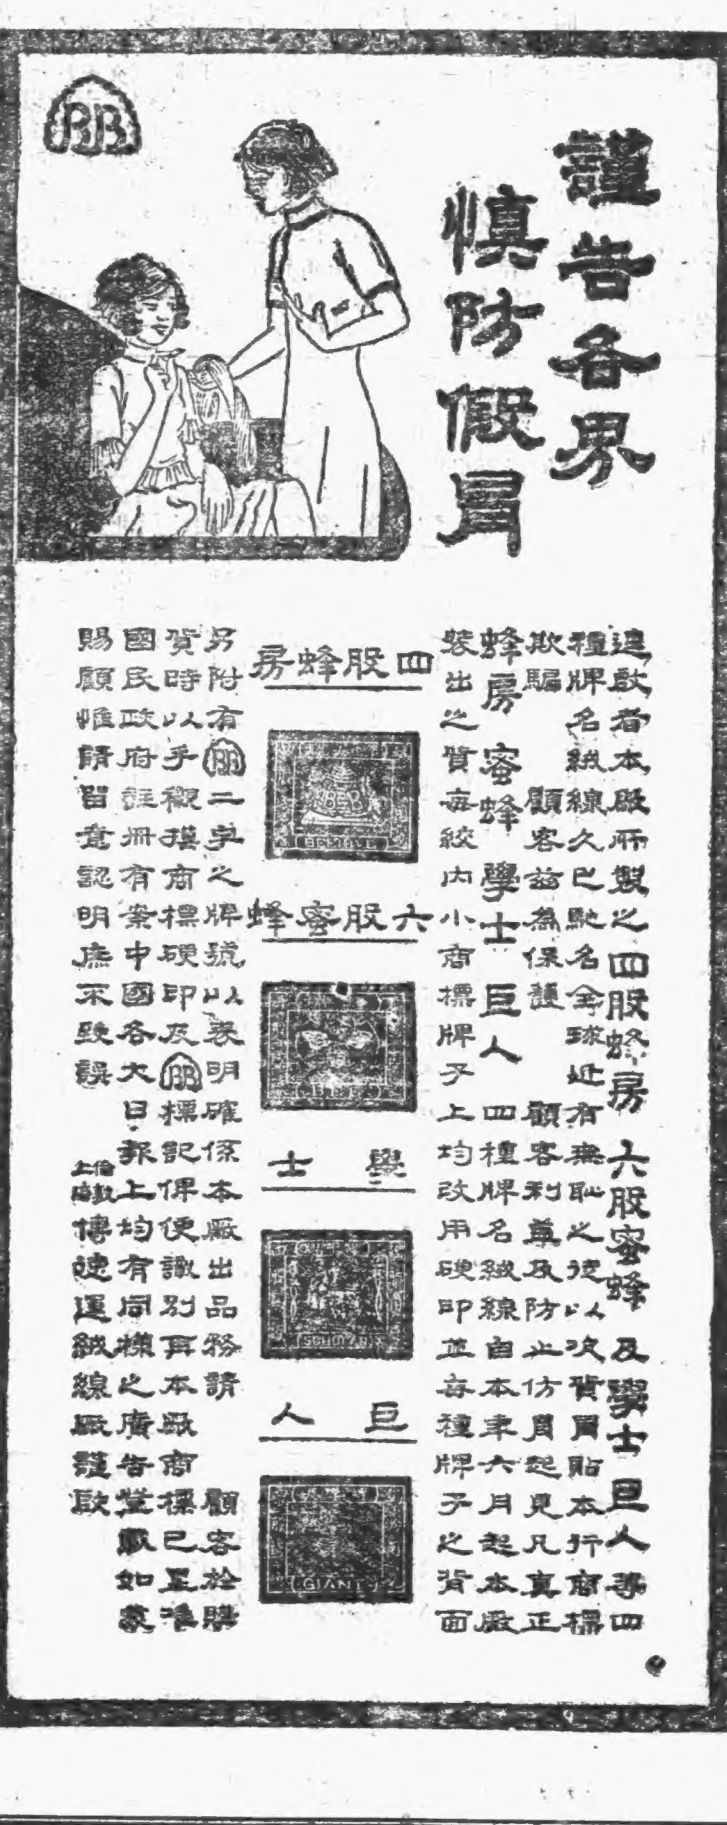 謹告各界
慎防假冒
逕啟者本廠所製之四股蜂房 六股蜜蜂 及學士 巨人等四
種牌名絨線久已馳名全球近有無恥之徒以次貨冒貼本行商標
欺騙 顧客茲為保護 顧客利益及防止仿冒起見凡真正
蜂房 蜜蜂 學士 巨人 四種牌名絨線自本年六月起本廠
裝出之貨每絞內小商標牌子上均改用硬印並每種牌子之背面
房蜂股四
BEEHIVE
蜂蜜股六
士 學
SCHOLAR
人 巨
GIANT
另附有BB二字之牌號以表明確係本廠出品務請 顧客於購
貨時以手親摸商標硬印及BB標記俾便識別再本廠商標已呈准
國民政府註冊有案中國各大日報上均有同樣之廣告登載如蒙
賜顧惟請留意認明庶不致誤
上海 倫敦 博德運絨線廠謹啟